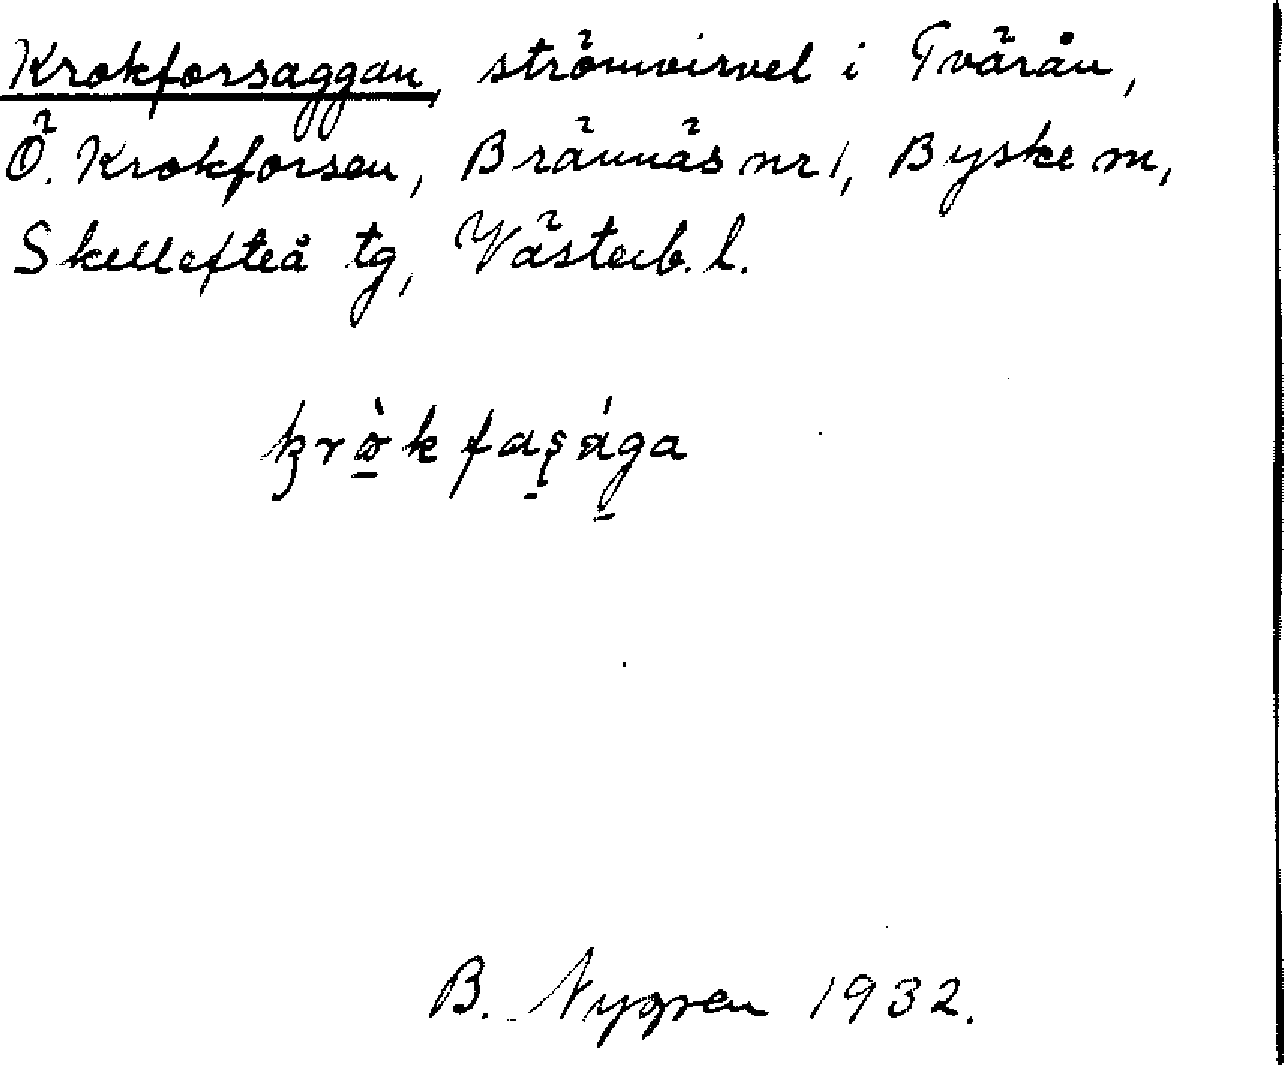 Krokforsaggan, strömvirvel i Tvärån,
Ö. Krokforsen, Brännäs nr 1, Byske sn,
Skellefteå tg, Västerb. l.
krò̠kfaʂága
B. Nygren 1932.